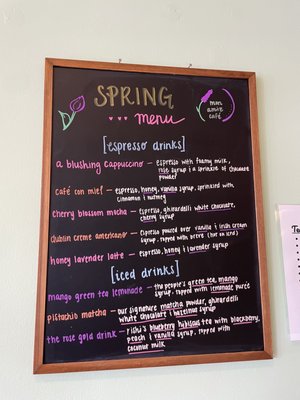 SPRING
menu
mon
amie
café
[espresso drinks]
a blushing cappuccino – espresso with foamy milk,
rose syrup & a sprinkle of chocolate
powder
café con miel – espresso, honey, vanilla syrup, sprinkled with
cinnamon & nutmeg
cherry blossom mocha – espresso, ghirardelli white chocolate,
cherry syrup
dublin creme americano – espresso poured over vanilla & irish cream
syrup, topped with breve (hot or iced)
honey lavender latte – espresso, honey & lavender syrup
[iced drinks]
mango green tea lemonade – the people's green tea, mango
syrup, topped with lemonade pureé
pistachio matcha – our signature matcha powder, ghirardelli
white chocolate & hazelnut syrup
the rose gold drink – rishi's blueberry hibiscus tea with blackberry,
peach & vanilla syrup, topped with
coconut milk